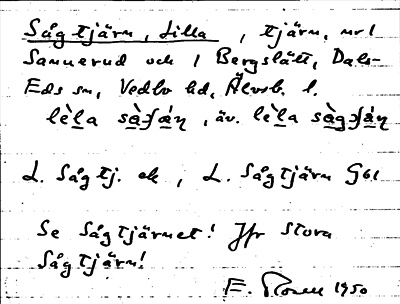 Sågtjärn, Lilla, tjärn, mr l
Sannerud och l Bergslätt, Dals-
Eds sn, Vedbo hd, Älvsb. l.
lè̀la sà̀ʃà́ṇ, äv. lè̀la sà̀gʃà́ṇ
L. Sågtj. ek, L. Sågtjärn G61
Se Sågtjärnet! Jfr Stora
Sågtjärn!
E. Rosell 1950